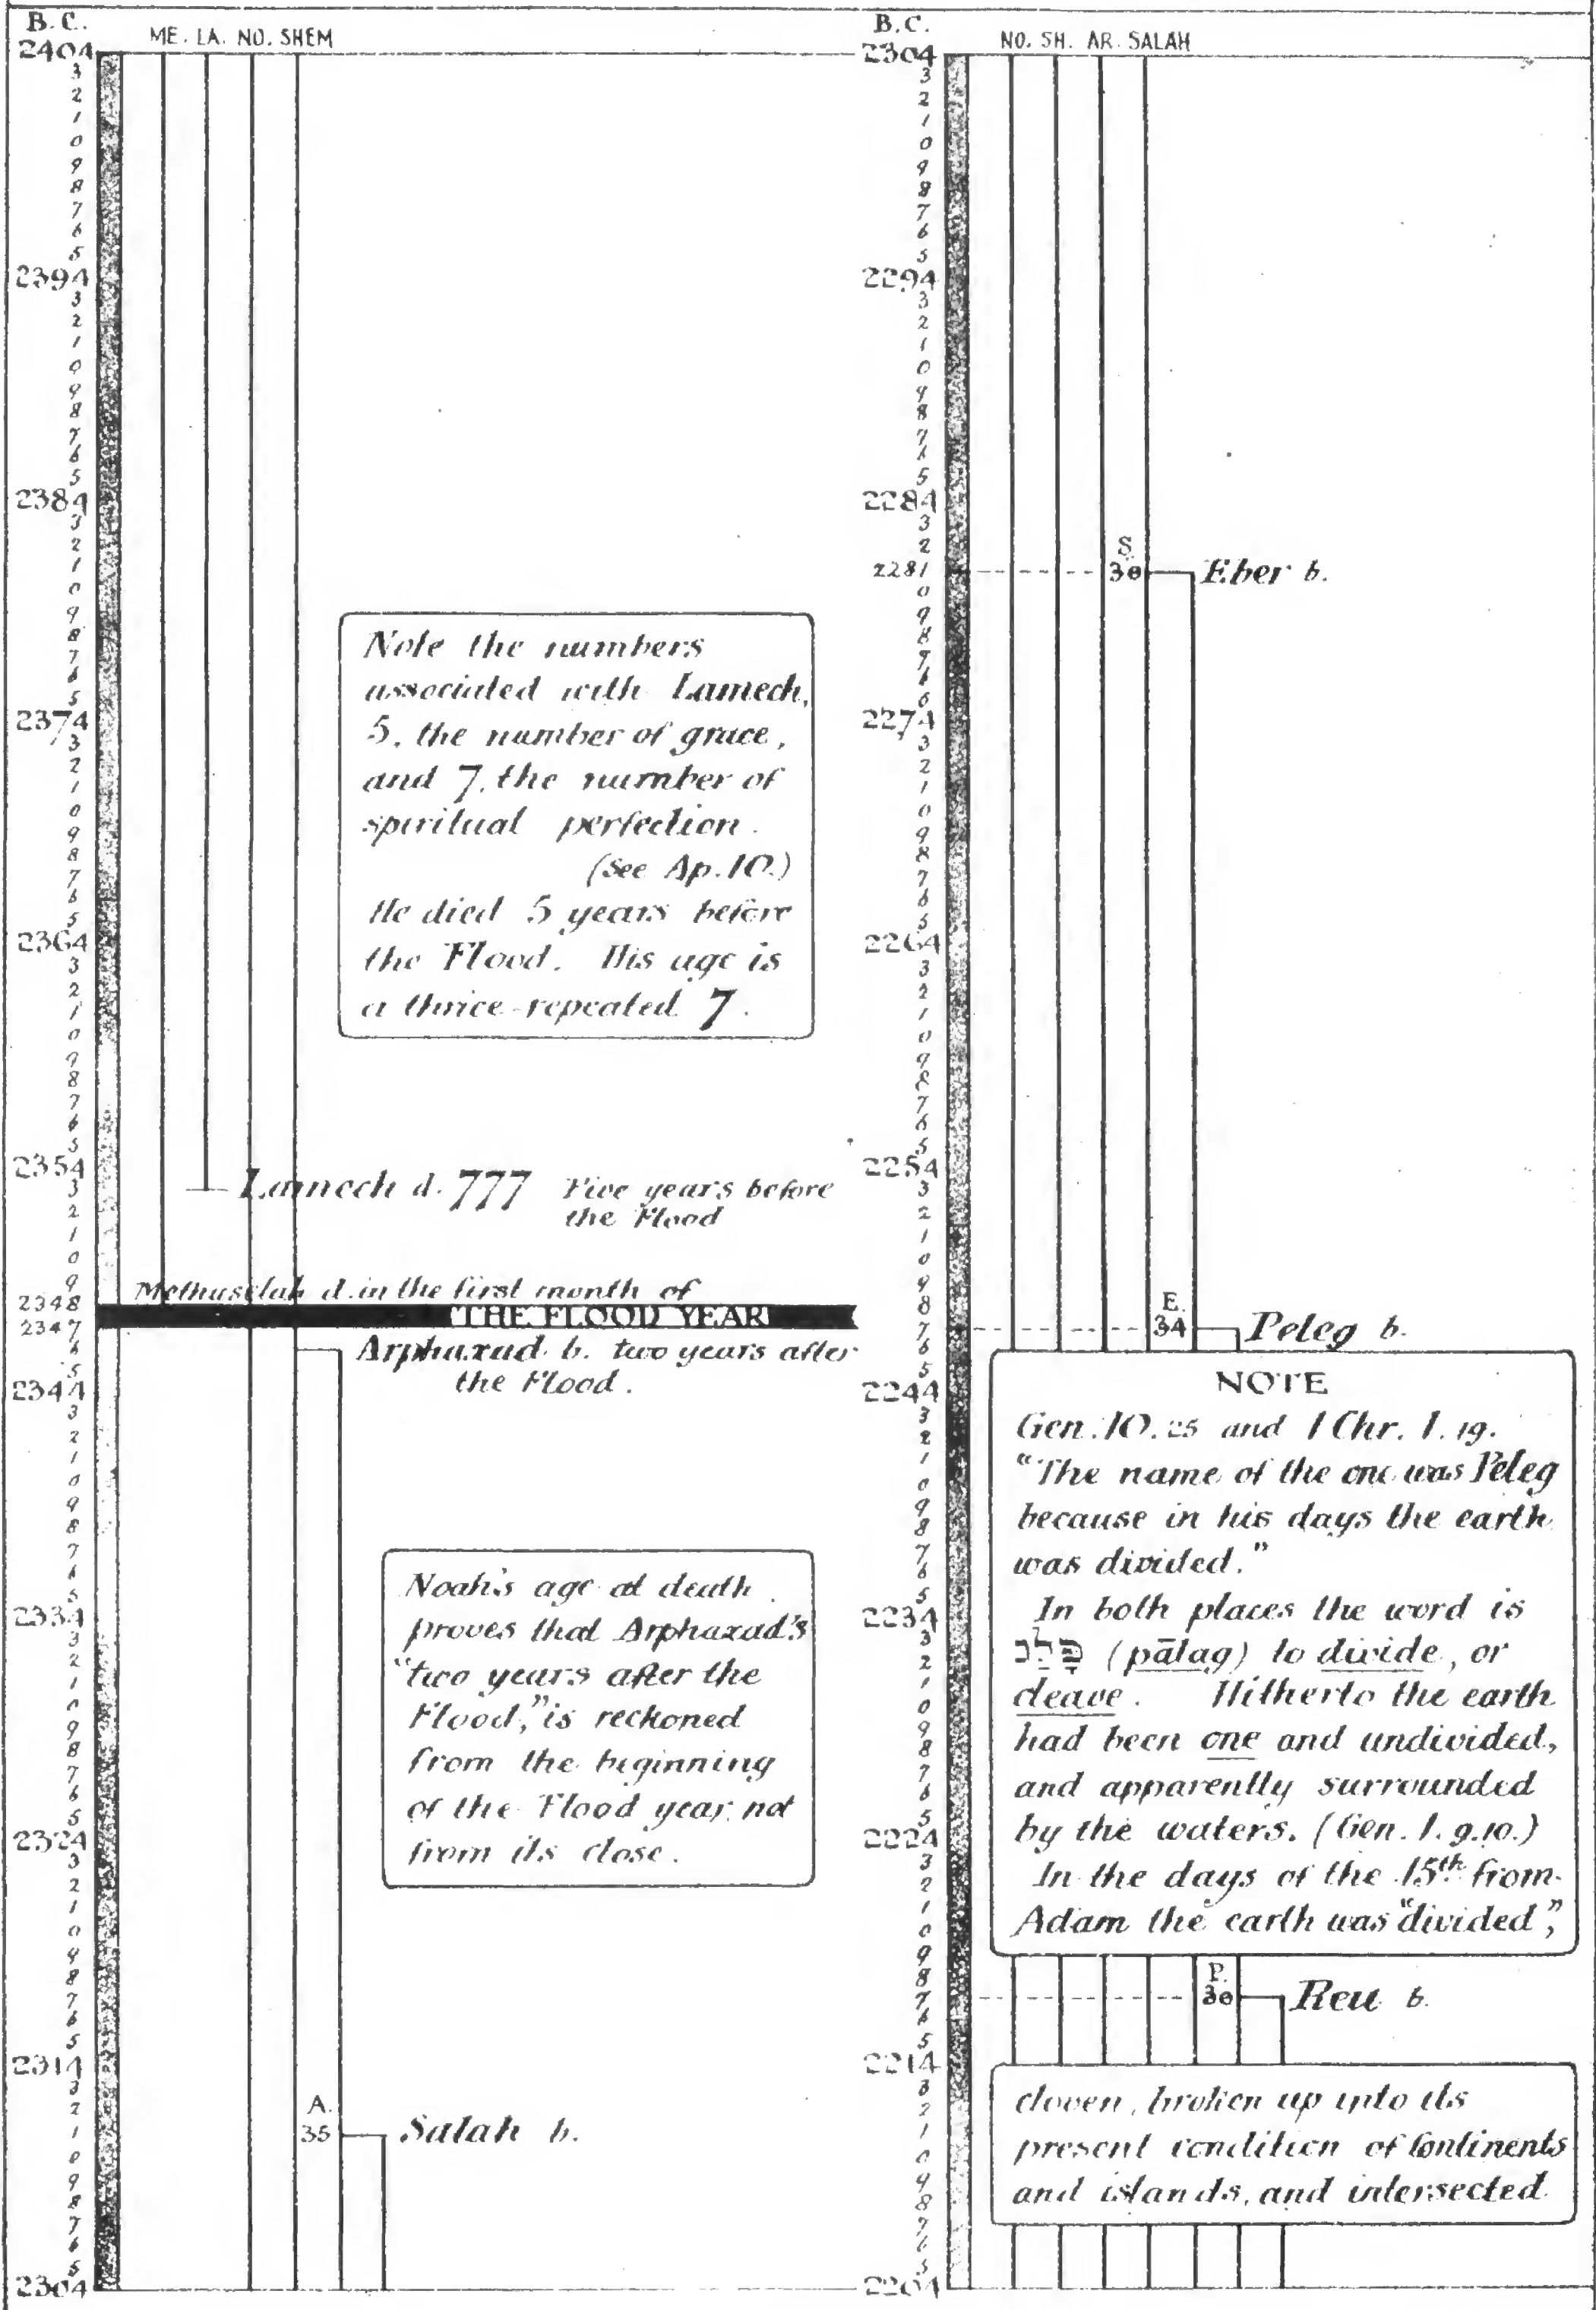 B.C.
ME. LA. NO. SHEM
2404
3
2
1
0
9
8
7
6
5
2394
3
2
1
0
9
8
7
6
5
2384
3
2
1
0
9
8
7
6
5
2374
3
2
1
0
9
8
7
6
5
2364
3
2
1
0
9
8
7
6
5
2354
3
2
1
0
9
2348
2347
6
5
2344
3
2
1
0
9
8
7
6
5
2334
3
2
1
0
9
8
7
6
5
2324
3
2
1
0
9
8
7
6
5
2314
3
2
1
0
9
8
7
6
5
2304
Note the numbers
associated with Lamech,
5, the number of grace,
and 7, the number of
spiritual perfection.
(See Ap. 10.)
He died 5 years before
the Flood. His age is
a thrice-repeated 7.
Lamech d. 777 Five years before
the Flood
Methuselah d. in the first month of
THE FLOOD YEAR
Arphaxad b. two years after
the Flood.
Noah's age at death
proves that Arphaxad's
"two years after the
Flood," is reckoned
from the beginning
of the Flood year, not
from its close.
A.
35 Salah b.
B.C.
NO. SH. AR. SALAH
2304
3
2
1
0
9
8
7
6
5
2294
3
2
1
0
9
8
7
6
5
2284
3
2
2281
0
9
8
7
6
5
2274
3
2
1
0
9
8
7
6
5
2264
3
2
1
0
9
8
7
6
5
2254
3
2
1
0
9
8
7
6
5
2244
3
2
1
0
9
8
7
6
5
2234
3
2
1
0
9
8
7
6
5
2224
3
2
1
0
9
8
7
6
5
2214
3
2
1
0
9
8
7
6
5
2204
S.
30 Eber b.
E.
34 Peleg b.
NOTE
Gen. 10. 25 and 1 Chr. 1. 19.
"The name of the one was Peleg
because in his days the earth
was divided."
In both places the word is
פָּלַג (pālag) to divide, or
cleave. Hitherto the earth
had been one and undivided,
and apparently surrounded
by the waters. (Gen. 1. 9.10.)
In the days of the 15th from
Adam the earth was "divided",
P.
30 Reu b.
cloven, broken up into its
present condition of Continents
and islands, and intersected